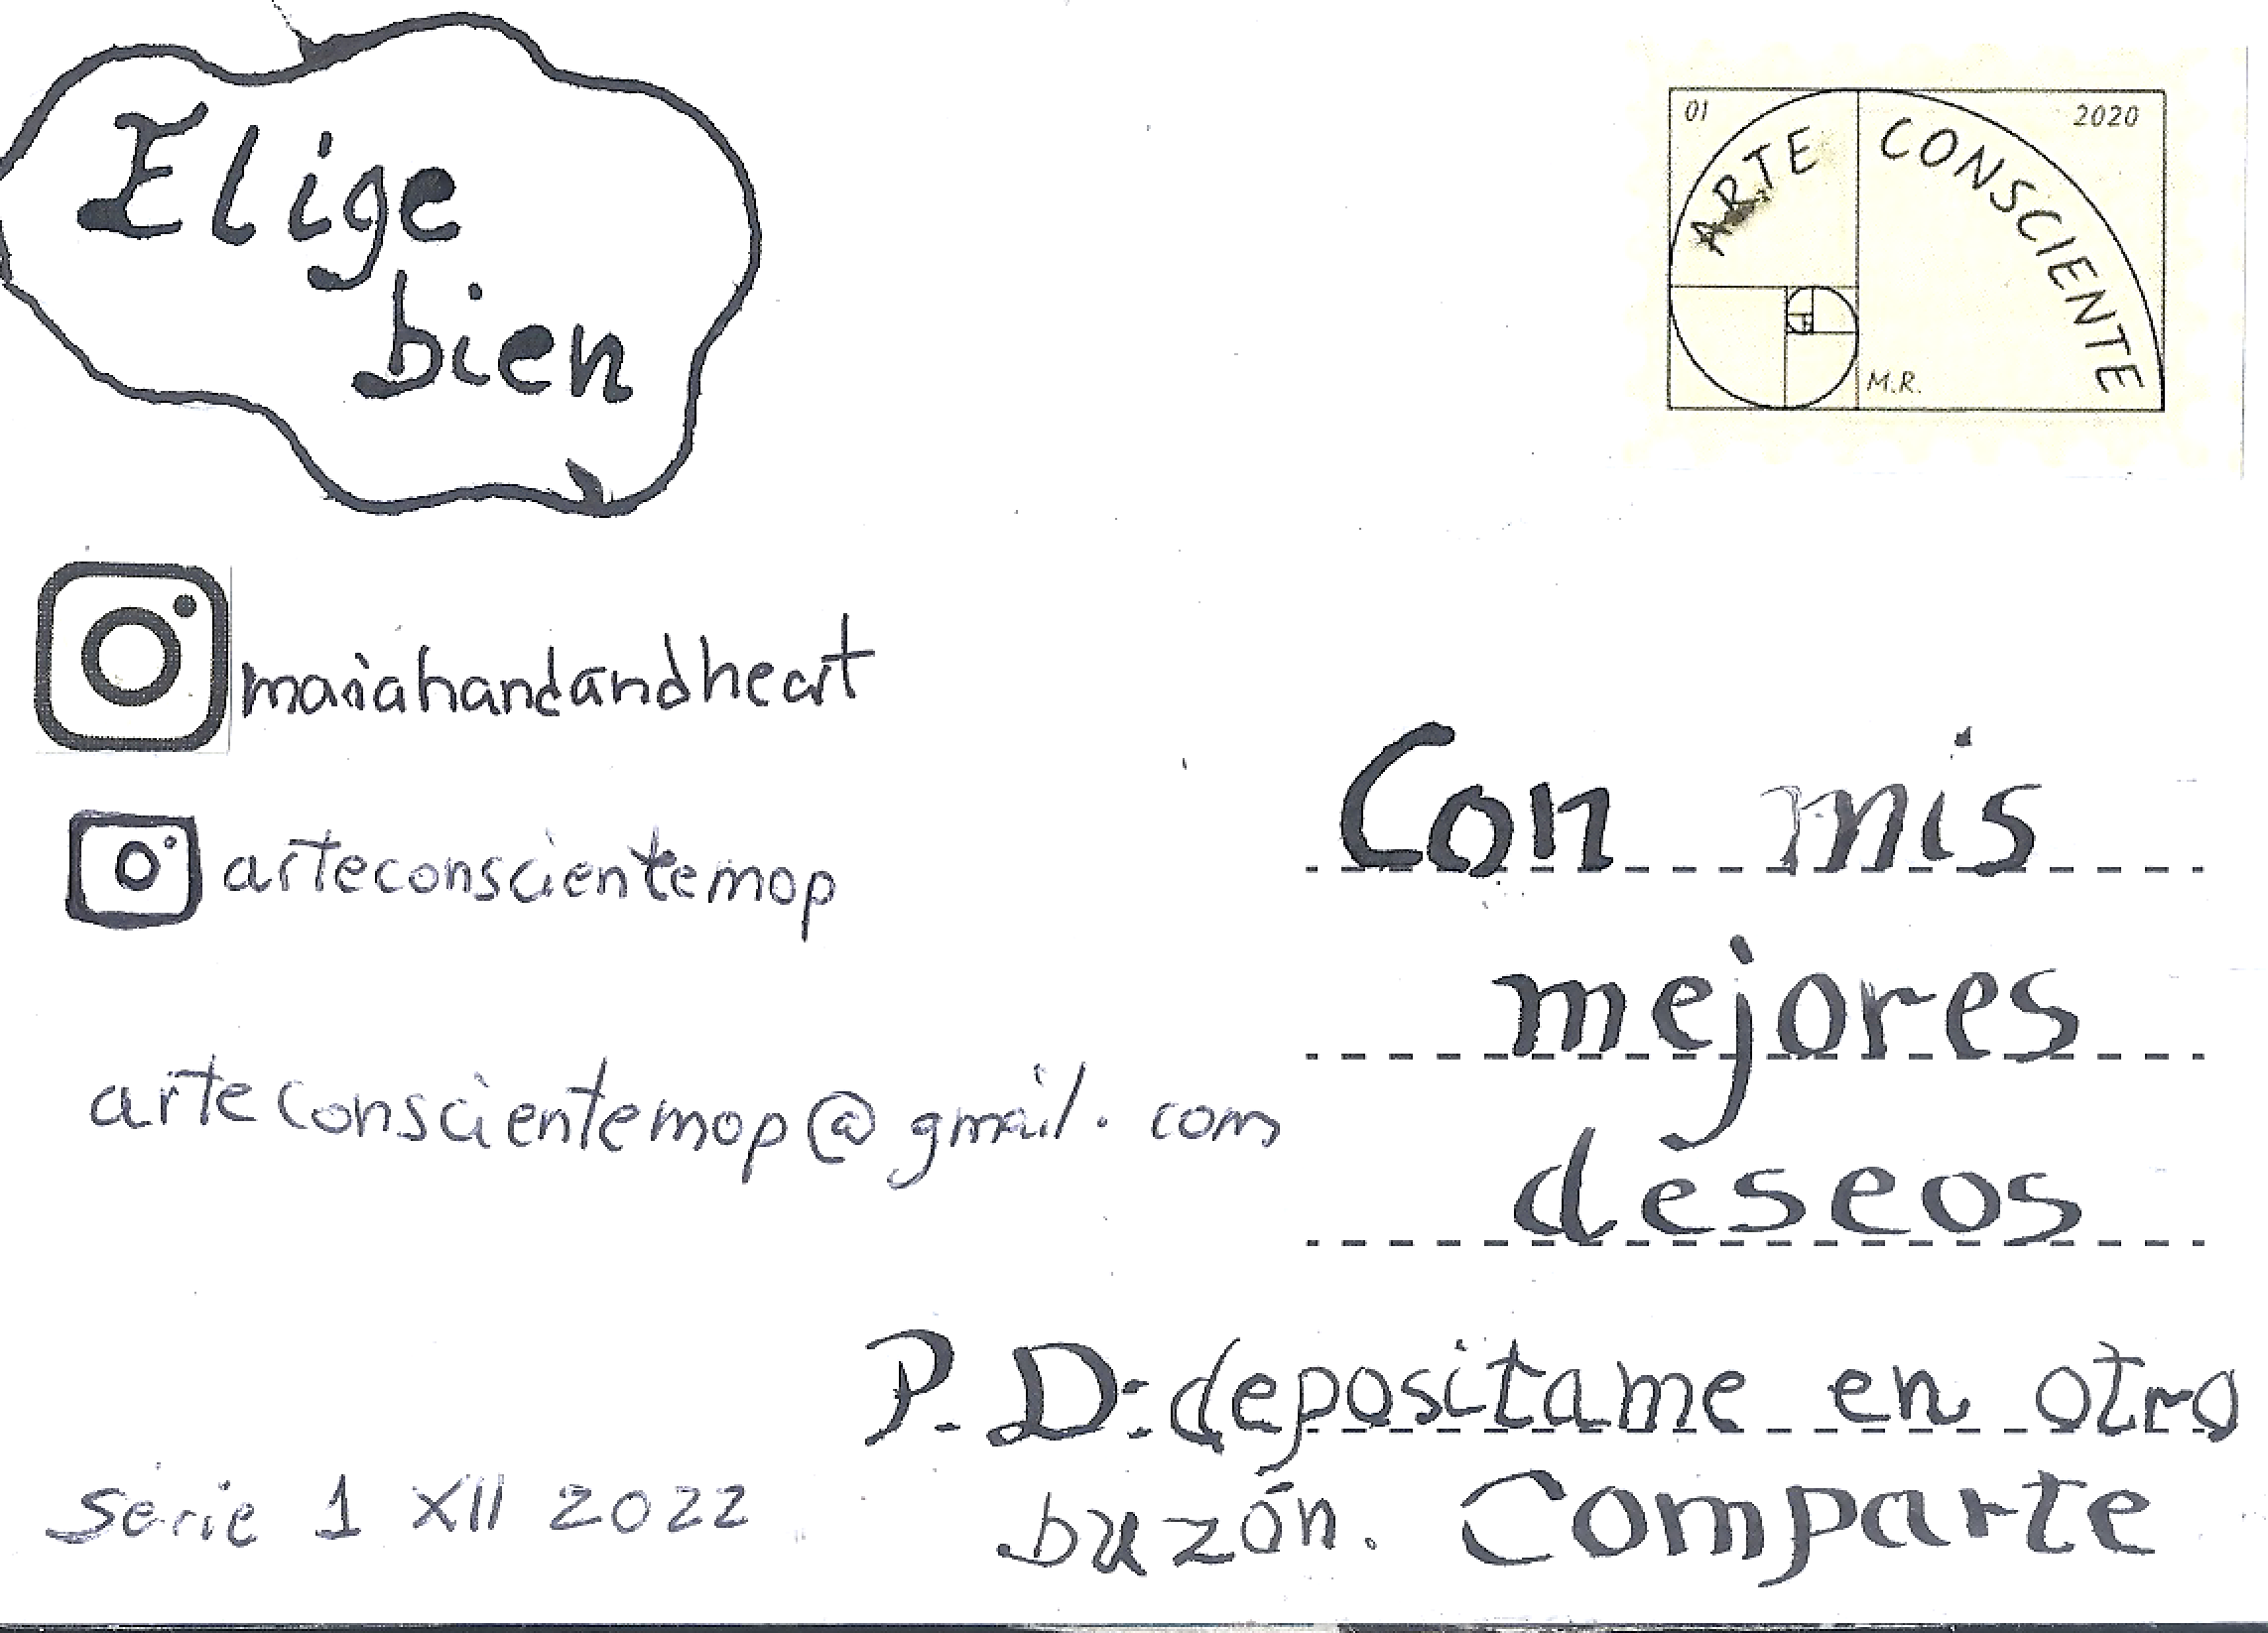 Elige
bien
01
2020
ARTE CONSCIENTE
M.R.
maiahandandheart
arteconscientemop
arteconscientemop@gmail.com
Con mis
mejores
deseos
P.D: depositame en otro
buzón. Comparte
serie 1 XII 2022